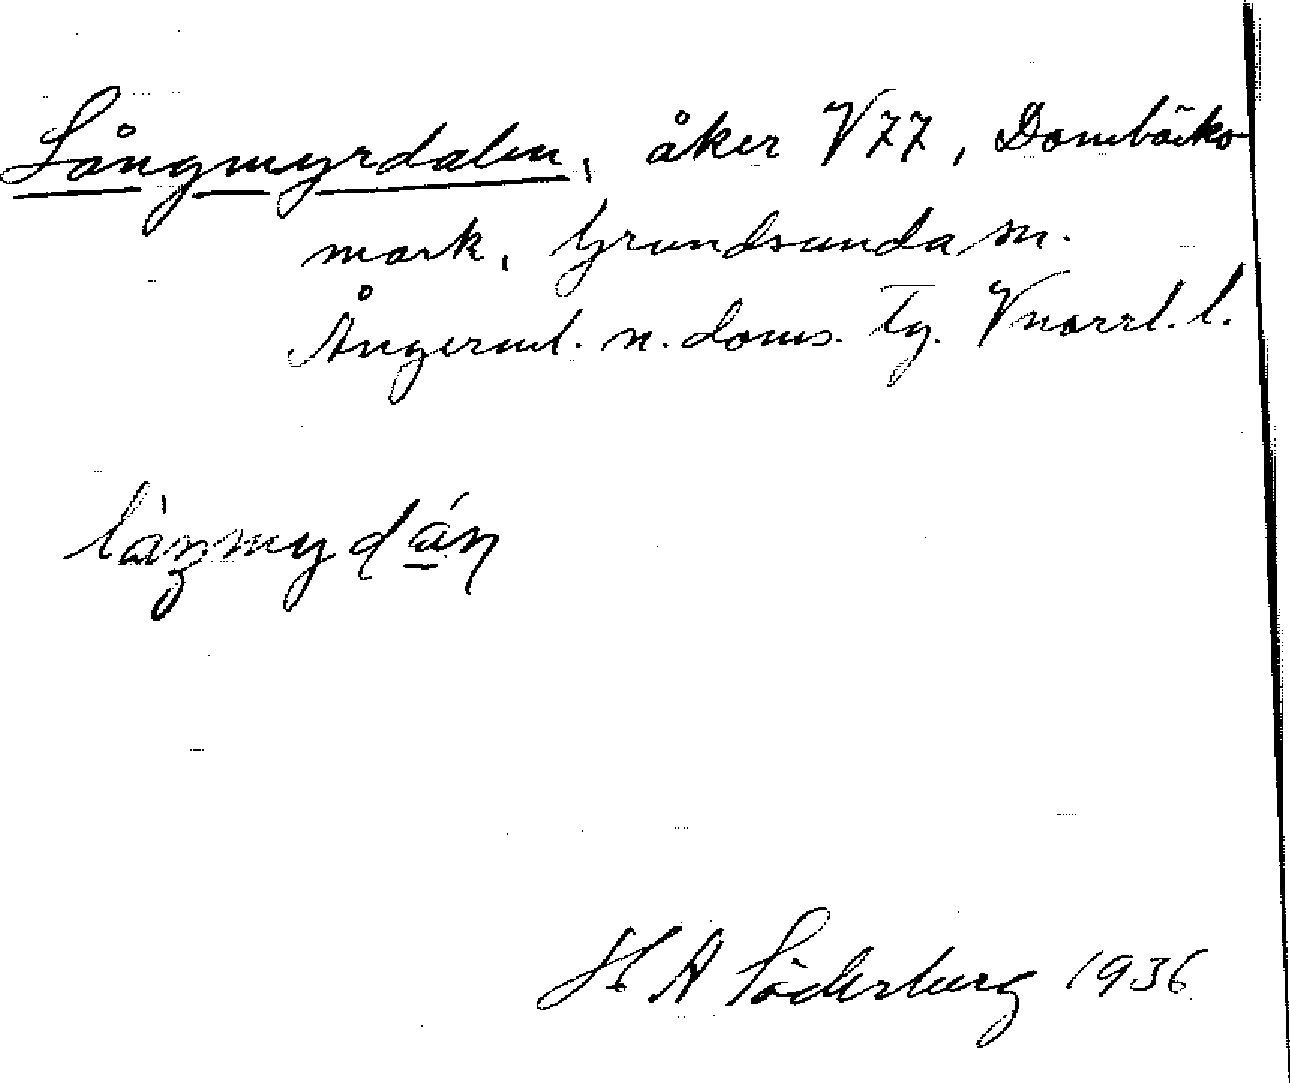 Långmyrdalen, åker V77, Dombäcks-
mark, Grundsunda sn.
Ångerml. n. doms. Tg. Vnorrl. l.
H A Söderberg 1936